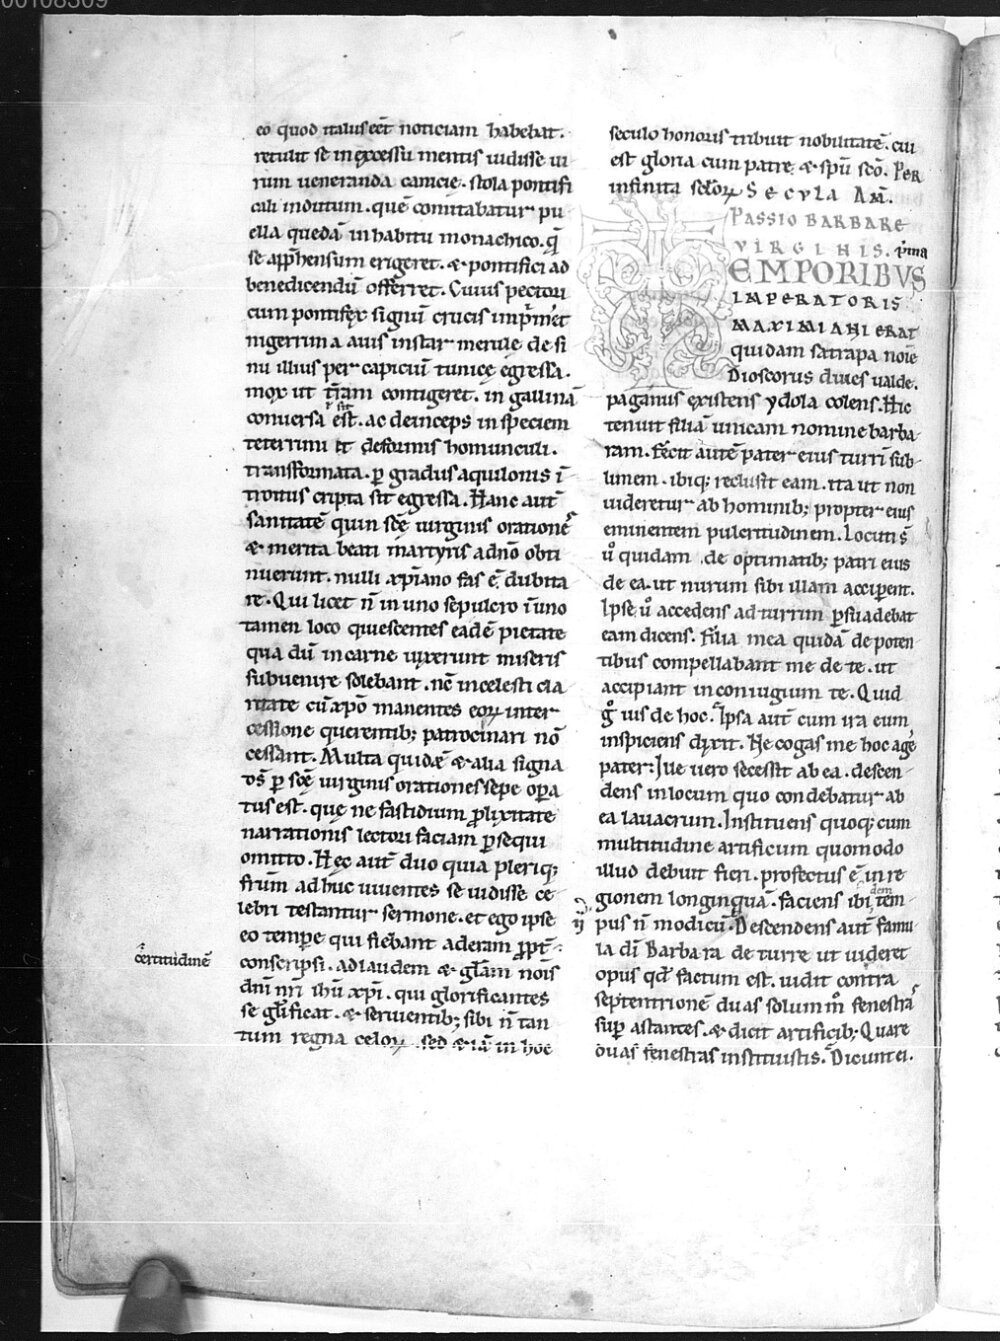 00108309
eo quod italus eēt noticiam habebat.
retulit se in excessu mentis uidisse ui
rum ueneranda canicie. stola pontifi
cali indutum. quē comitabatur pu
ella quedā in habitu monachico. q̄
se app̄hensum erigeret. & pontifici ad
benedicendū offerret. Cuius pectori
cum pontifex signū crucis imp̄meret
nigerrima auis instar merule de si
nu illius per capiciū tunicę egressa.
mox ut t̄ram contigeret. in gallinā
conuersa est. ac deinceps in speciem
teterrimi et deformis homunculi.
transformata. ꝑ gradus aquilonis ī
troitus cripta sit egressa. Hanc autē
sanitatē quin scē uirginis orationē
& merita beati martyris ad nō obti
nuerunt. nulli xp̄iano fas ē dubita
re. Qui licet n̄ in uno sepulcro ī uno
tamen loco quiescentes eadē pietate
qua dū in carne uixerunt miseris
subuenire solebant. nc̄ in celesti cla
ritate cū xp̄o manentes eoꝝ inter
cessione querentib; patrocinari nō
cessant. Multa quidē & alia signa
ds̄ ꝑ scē uirginis orationes sepe oꝑa
tus est. que ne fastidium ꝓlixitate
narrationis lectori faciam ꝑsequi
omitto. Hęc autē duo quia pleriq;
frūm adhuc uiuentes se uidisse ce
lebri testantur sermone. et ego ipse
eo temp̄e qui fiebant aderam ꝓpt̄
certitudinē
conscripsi. ad laudem & gl̄am nōis
dn̄i nr̄i ihū xp̄i. qui glorificantes
se gl̄ificat. & seruientib; sibi n̄ tan
tum regna celoꝝ. sed & iā in hoc
seculo honoris tribuit nobilitatē. cui
est gloria cum patre & sp̄u scō. Per
infinita scl̄oꝝ Secula Am̄.
PASSIO BARBARE
VIRGINIS. p̄ma
EMPORIBVS
IMPERATORIS
MAXIMIANI ERAT
quidam satrapa noīe
Dioscorus diues ualde.
paganus existens ydola colens. Hic
tenuit filiā unicam nomine barba
ram. Fecit autē pater eius turrī sub
limem. ibiq; reclusit eam. ita ut non
uideretur ab hominib; propter eius
eminentem pulcritudinem. Locuti s̄
u̇ quidam de optimatib; patri eius
de ea. ut nurum sibi illam acciperent.
Ipse u̇ accedens ad turrim ꝑsuadebat
eam dicens. Filia mea quidā de poten
tibus compellabant me de te. ut
accipiant in coniugium te. Quid
g̊ uis de hoc. Ipsa autē cum ira eum
inspiciens dixit. Ne cogas me hoc age
pater. Ille uero secessit ab ea. descen
dens in locum quo condebatur ab
ea lauacrum. Instituens quoq; cum
multitudine artificum quomodo
illud debuit fieri. profectus ē in re
gionem longinquā. faciens ibidem tem
pus n̄ modicū. Descendens autē famu
la dī Barbara de turre ut uideret
opus qd̄ factum est. uidit contra
septentrionē duas solum m̊ fenestras
suꝑ astantes. & dicit artificib; Quare
duas fenestras instituistis. Dicunt ei.